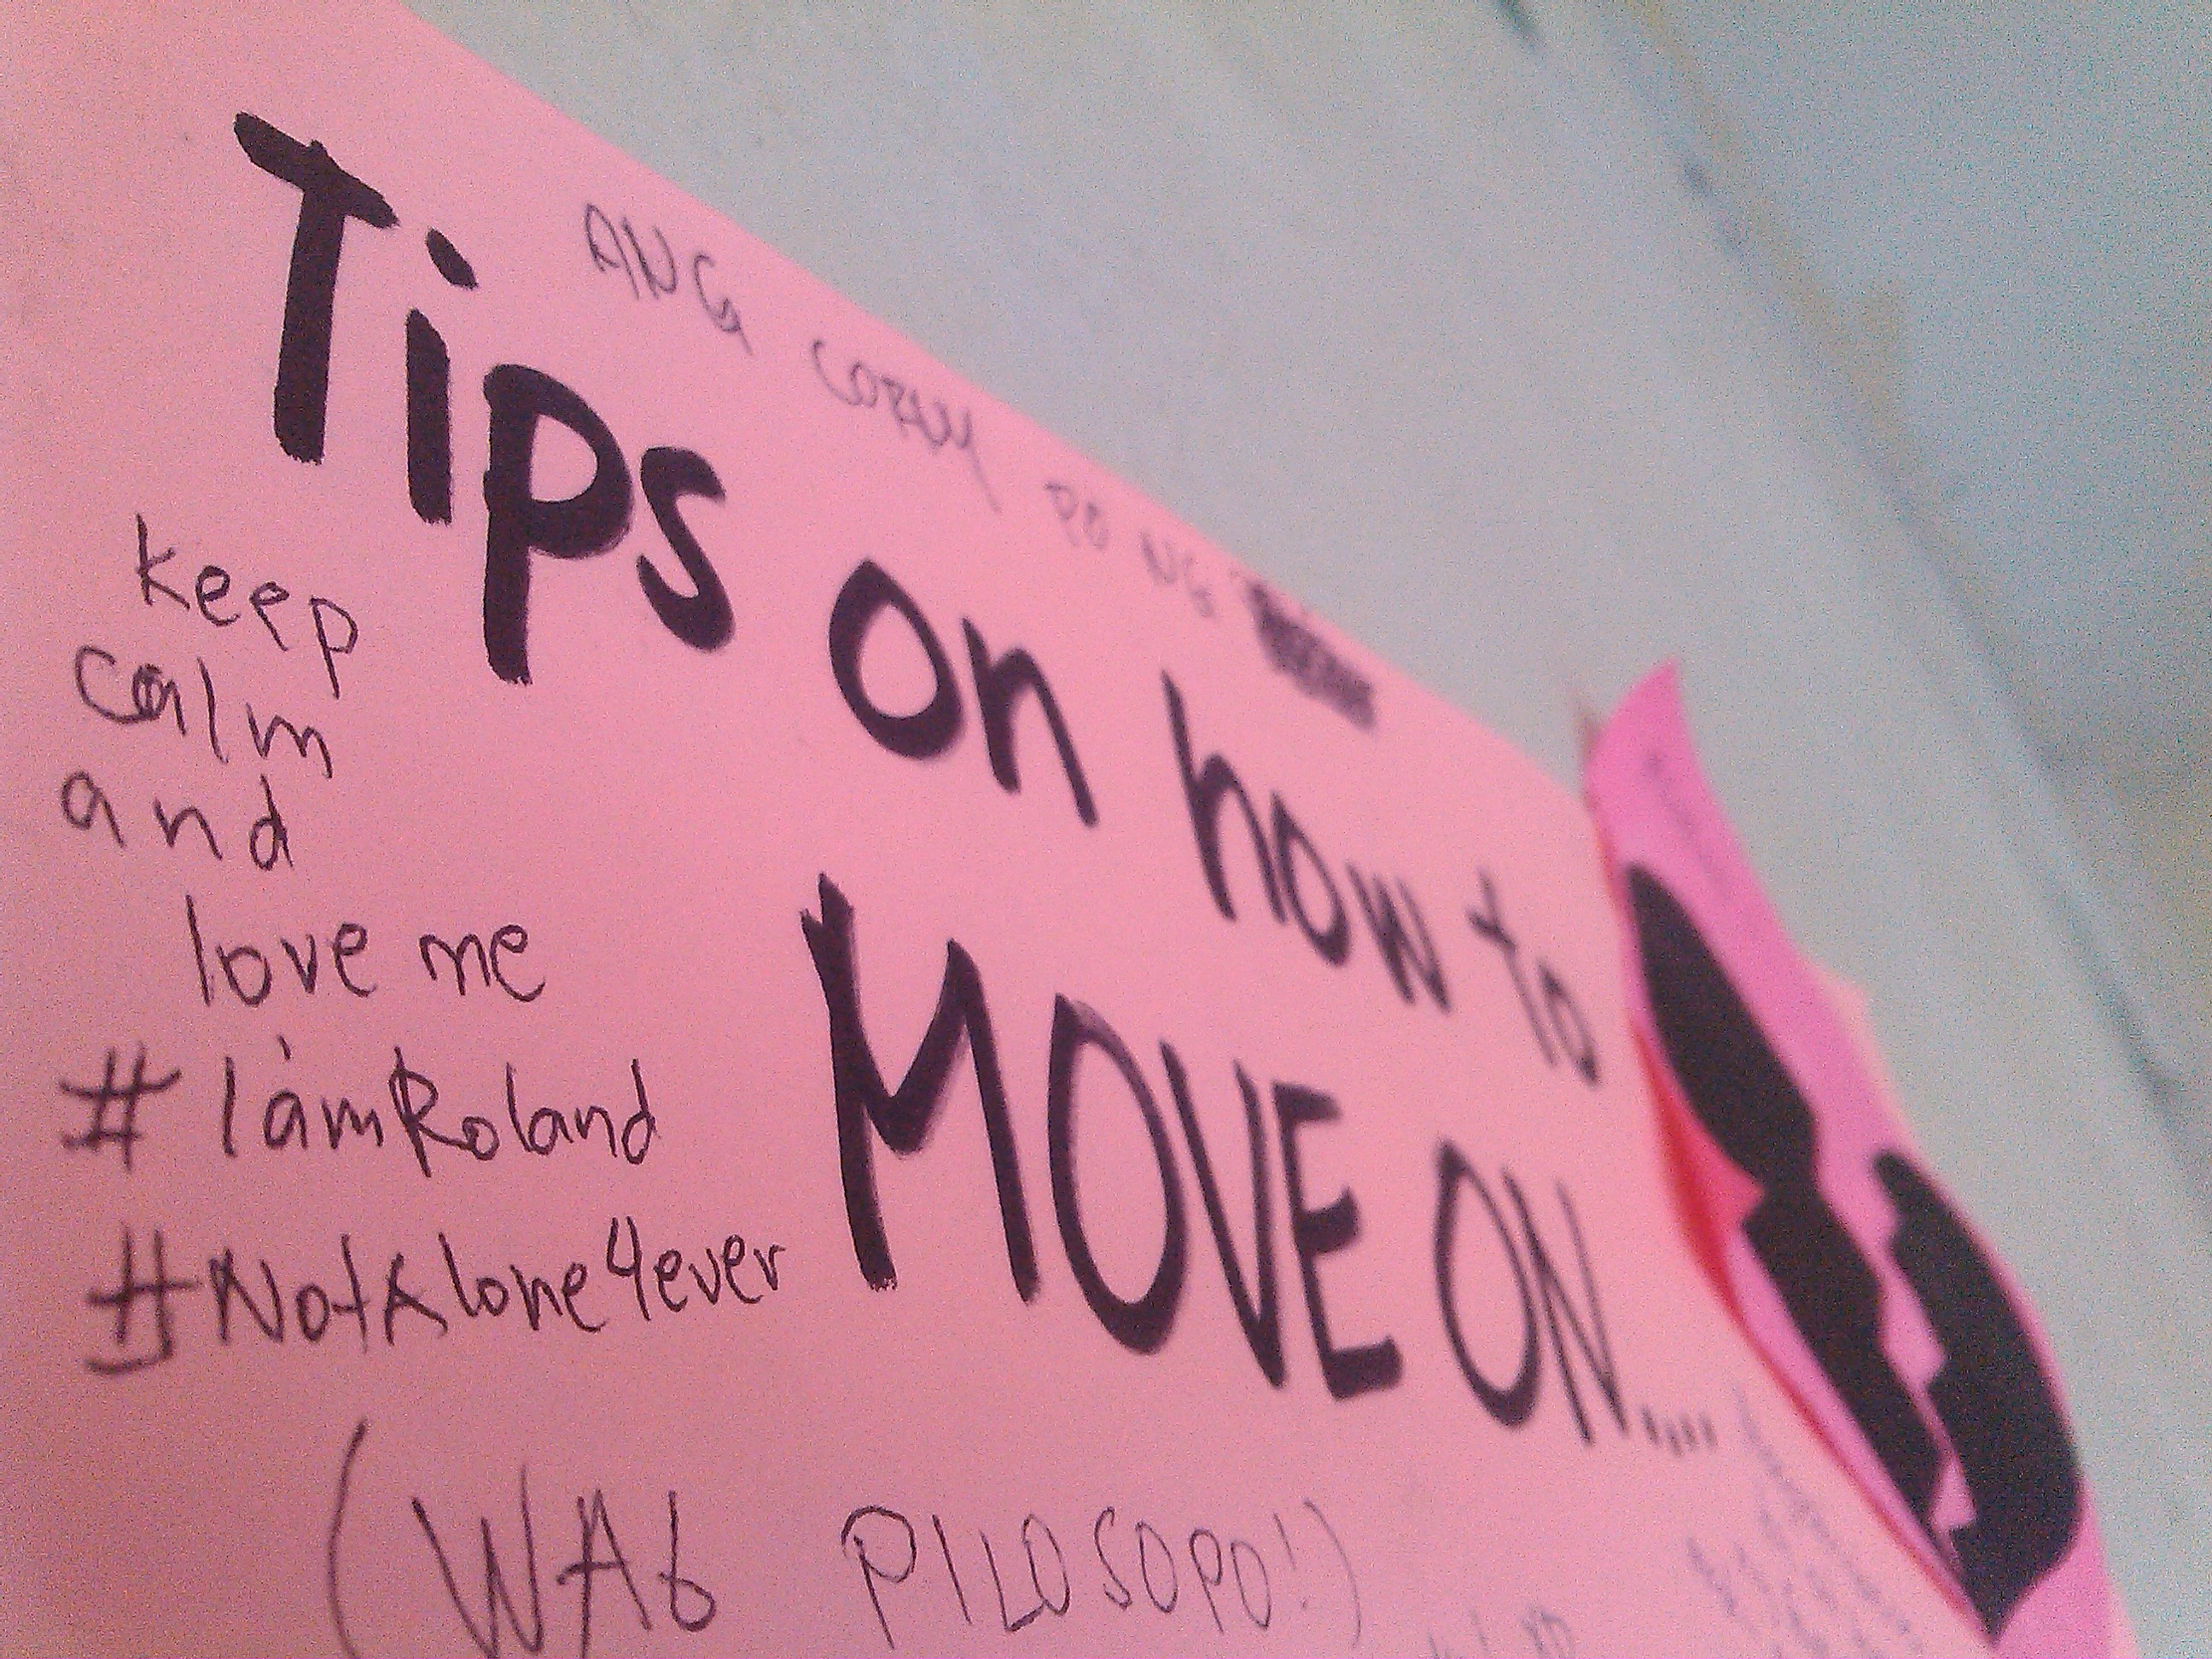 ANG CORNY PO NG
Tips on how to
MOVE ON...
keep
calm
and
love me
#IamRoland
#NotAlone4ever
(WAG PILOSOPO!)